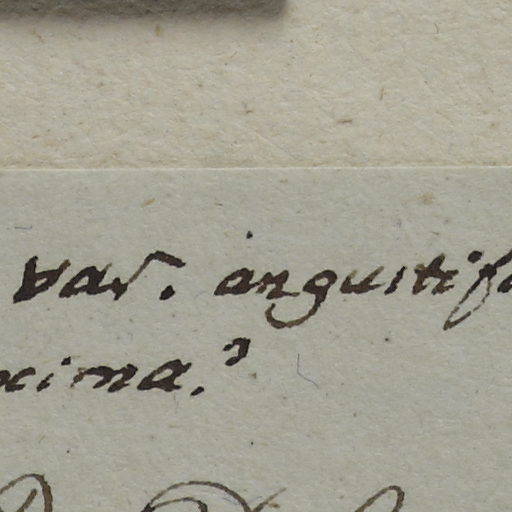 var. angustifo
xima.?